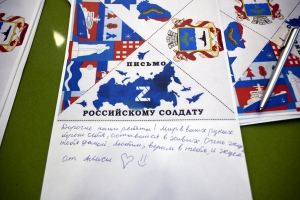 ПИСЬМО
Z
РОССИЙСКОМУ СОЛДАТУ
Дорогие наши ребята! Мир в ваших руках.
Береги себя, оставайся в живых. Очень ждем
тебя домой. Любим, верим в тебя, и ждем
от Алисы